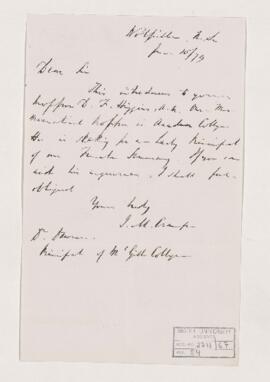 Wolfville, N.S.
Dear Sir
This introduces to you
Professor D. F. Higgins, M.A. Our
Professor in Acadia College
He is seeking for a Lady Principal
of our Female Seminary. If you can
aid his I shall feel
obliged
Yours truly
J. M. Cramp
Dr. Dawson
Principal of McGill College
McGILL UNIVERSITY
ARCHIVES
ACC. NO. 2211